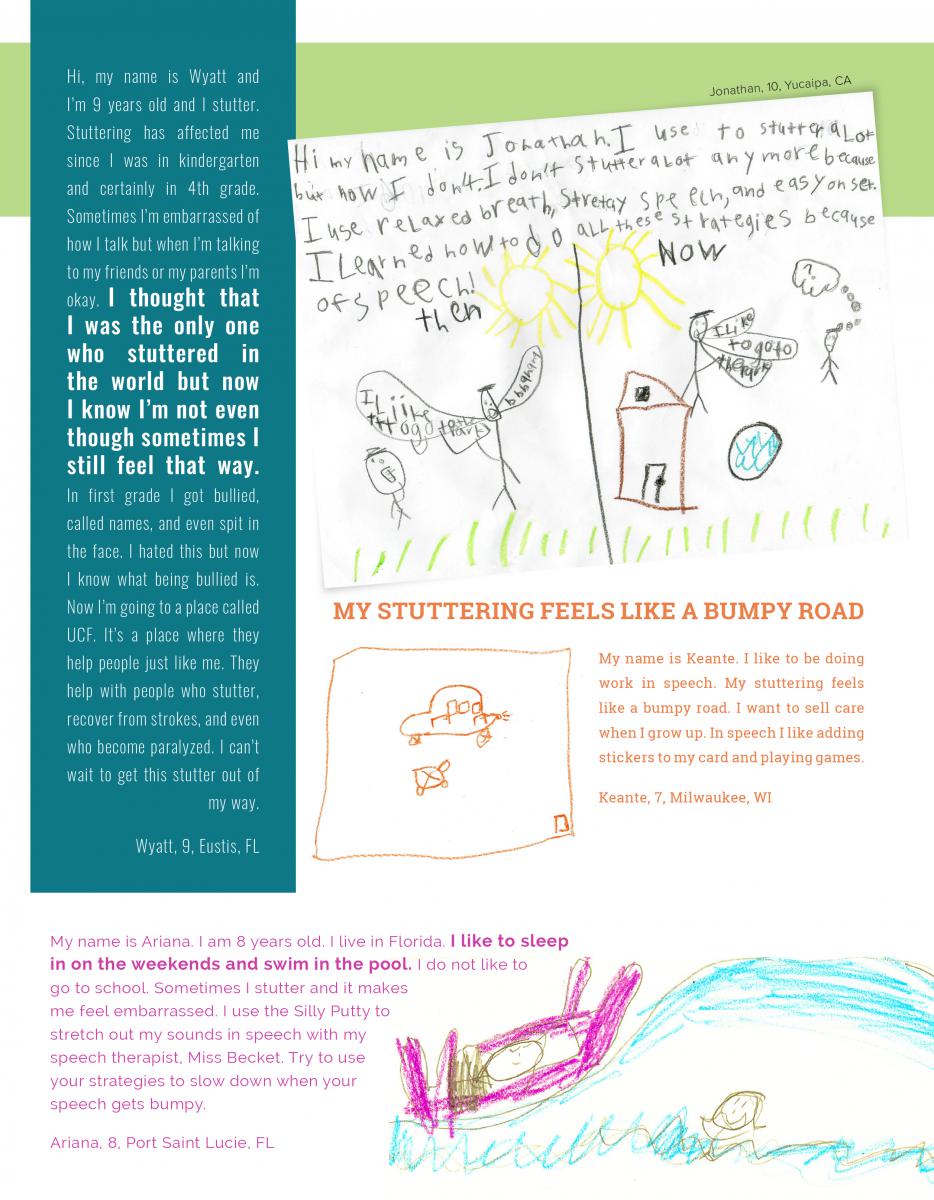 Hi, my name is Wyatt and
I'm 9 years old and I stutter.
Stuttering has affected me
since I was in kindergarten
and certainly in 4th grade.
Sometimes I'm embarrassed of
how I talk but when I'm talking
to my friends or my parents I'm
okay. I thought that
I was the only one
who stuttered in
the world but now
I know I'm not even
though sometimes I
still feel that way.
In first grade I got bullied,
called names, and even spit in
the face. I hated this but now
I know what being bullied is.
Now I'm going to a place called
UCF. It's a place where they
help people just like me. They
help with people who stutter,
recover from strokes, and even
who become paralyzed. I can't
wait to get this stutter out of
my way.
Wyatt, 9, Eustis, FL
Jonathan, 10, Yucaipa, CA
Hi my name is Jonathan. I use to stutter a Lot
but now I don't. I don't stutter a Lot any more because
I use relaxed breath, Stretay speech, and easy onset.
I Learned how to do all these strategies because
of speech!
then
NOW
I Liiike
ttt ogo to the
Park
bbbanana
I Like
to go to
the Park
?
MY STUTTERING FEELS LIKE A BUMPY ROAD
My name is Keante. I like to be doing
work in speech. My stuttering feels
like a bumpy road. I want to sell care
when I grow up. In speech I like adding
stickers to my card and playing games.
Keante, 7, Milwaukee, WI
My name is Ariana. I am 8 years old. I live in Florida. I like to sleep
in on the weekends and swim in the pool. I do not like to
go to school. Sometimes I stutter and it makes
me feel embarrassed. I use the Silly Putty to
stretch out my sounds in speech with my
speech therapist, Miss Becket. Try to use
your strategies to slow down when your
speech gets bumpy.
Ariana, 8, Port Saint Lucie, FL